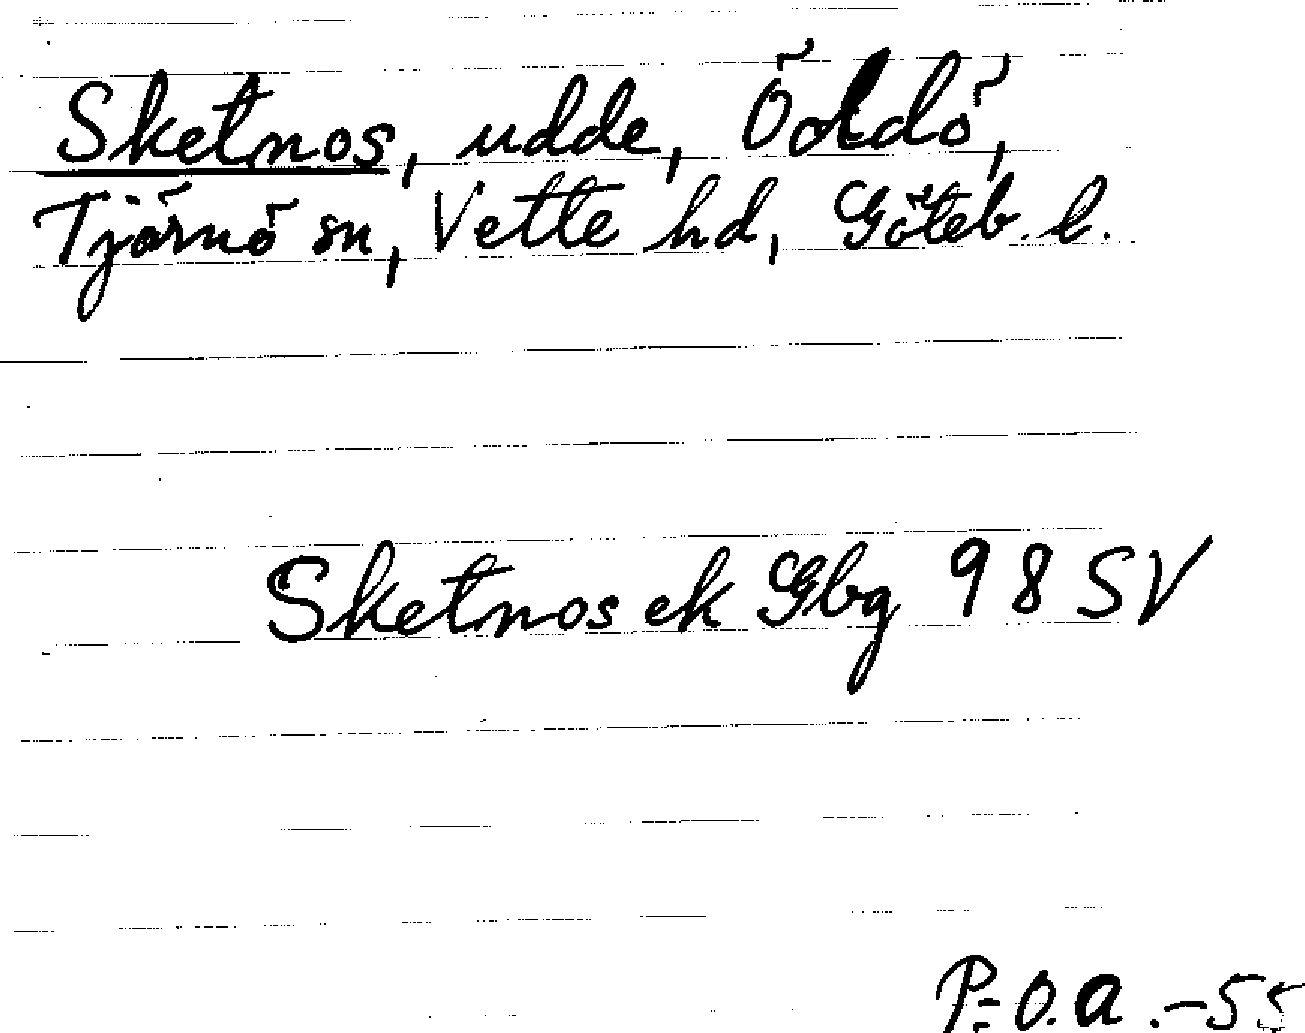 Sketnos, udde, Öddö,
Tjärnö sn, Vette hd, Göteb. l.
Sketnos ek Gbg 98 SV
P.-O. A. -55